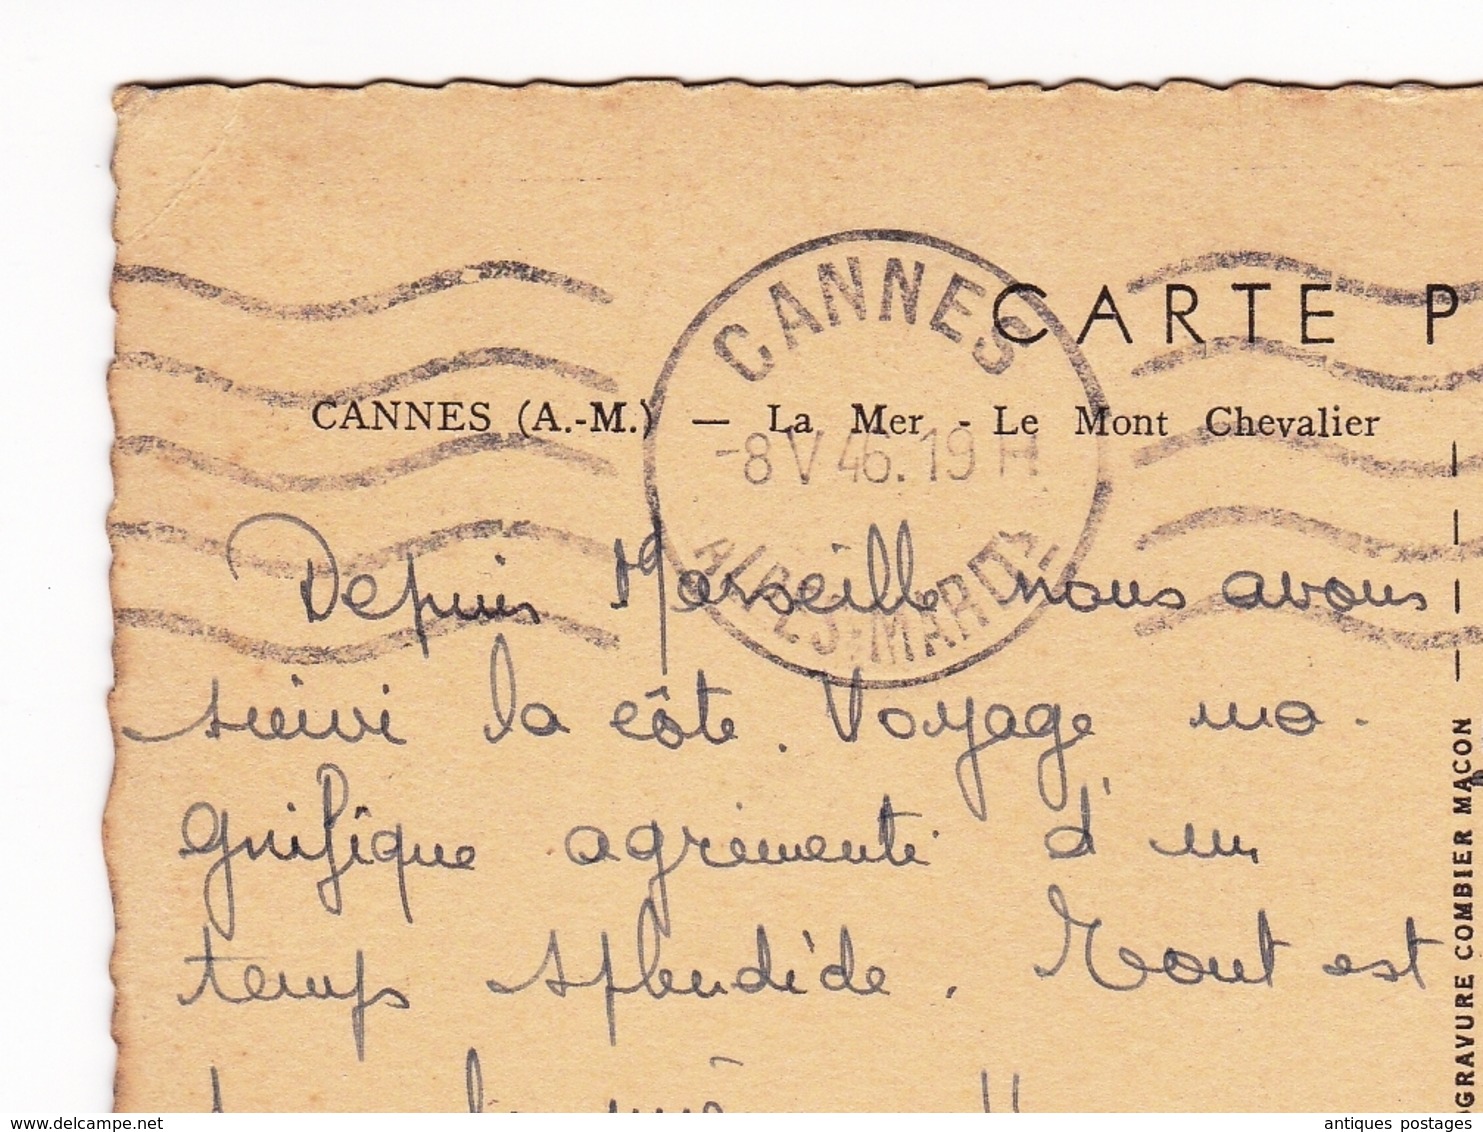 CANNES
CARTE P
CANNES (A.-M.) — La Mer - Le Mont Chevalier
-8 V 46. 19 H
ALPES-MARIT
Depuis Marseille nous avons
suivi la côte. Voyage ma-
gnifique agrémenté d'un
temps splendide. Tout est
OGRAVURE COMBIER MACON
delcampe.net
antiques postages